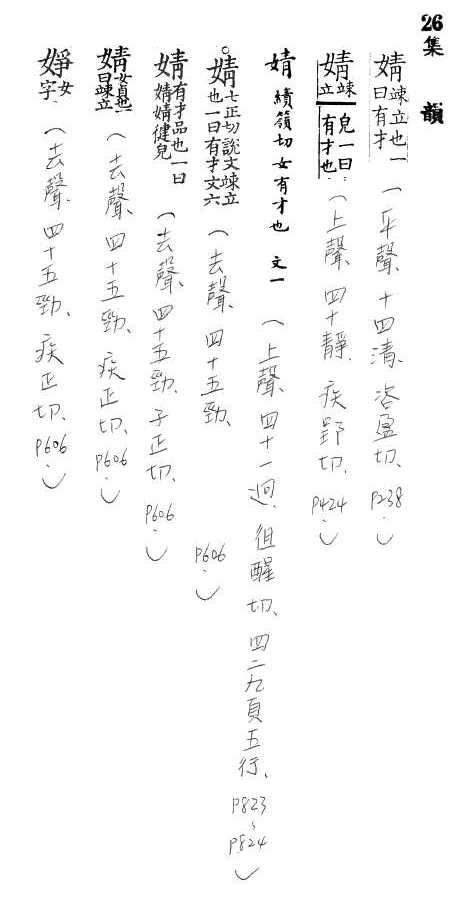 26集 韻
婧 竦立也一曰有才 （平聲、十四清、咨盈切、P238.）
婧 竦立皃一曰：有才也 （上聲、四十靜、疾郢切、P424.）
婧 績領切女有才也 文一 （上聲、四十一迥、徂醒切、四二九頁五行、P823、P824）
婧 七正切說文竦立也一曰有才文六 （去聲、四十五勁、P606.）
婧 有才品也一曰婧婧健皃 （去聲、四十五勁、子正切、P606.）
婧 女貞也一曰竦立 （去聲、四十五勁、疾正切、P606.）
婙 女字 （去聲、四十五勁、疾正切、P606.）